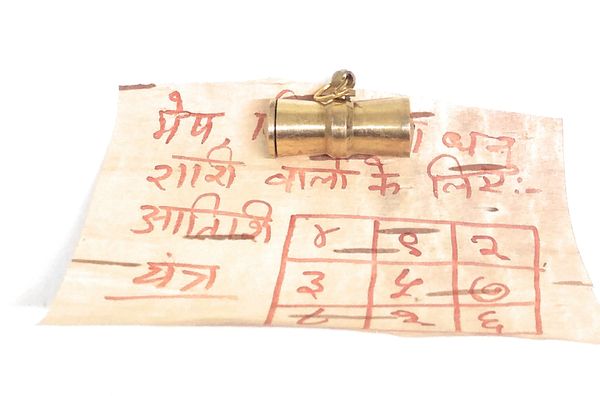 मेष, धनु
राशि वालों के लिए:-
आतिशी
यंत्र
४ ९ २
३ ५ ७
८ १ ६